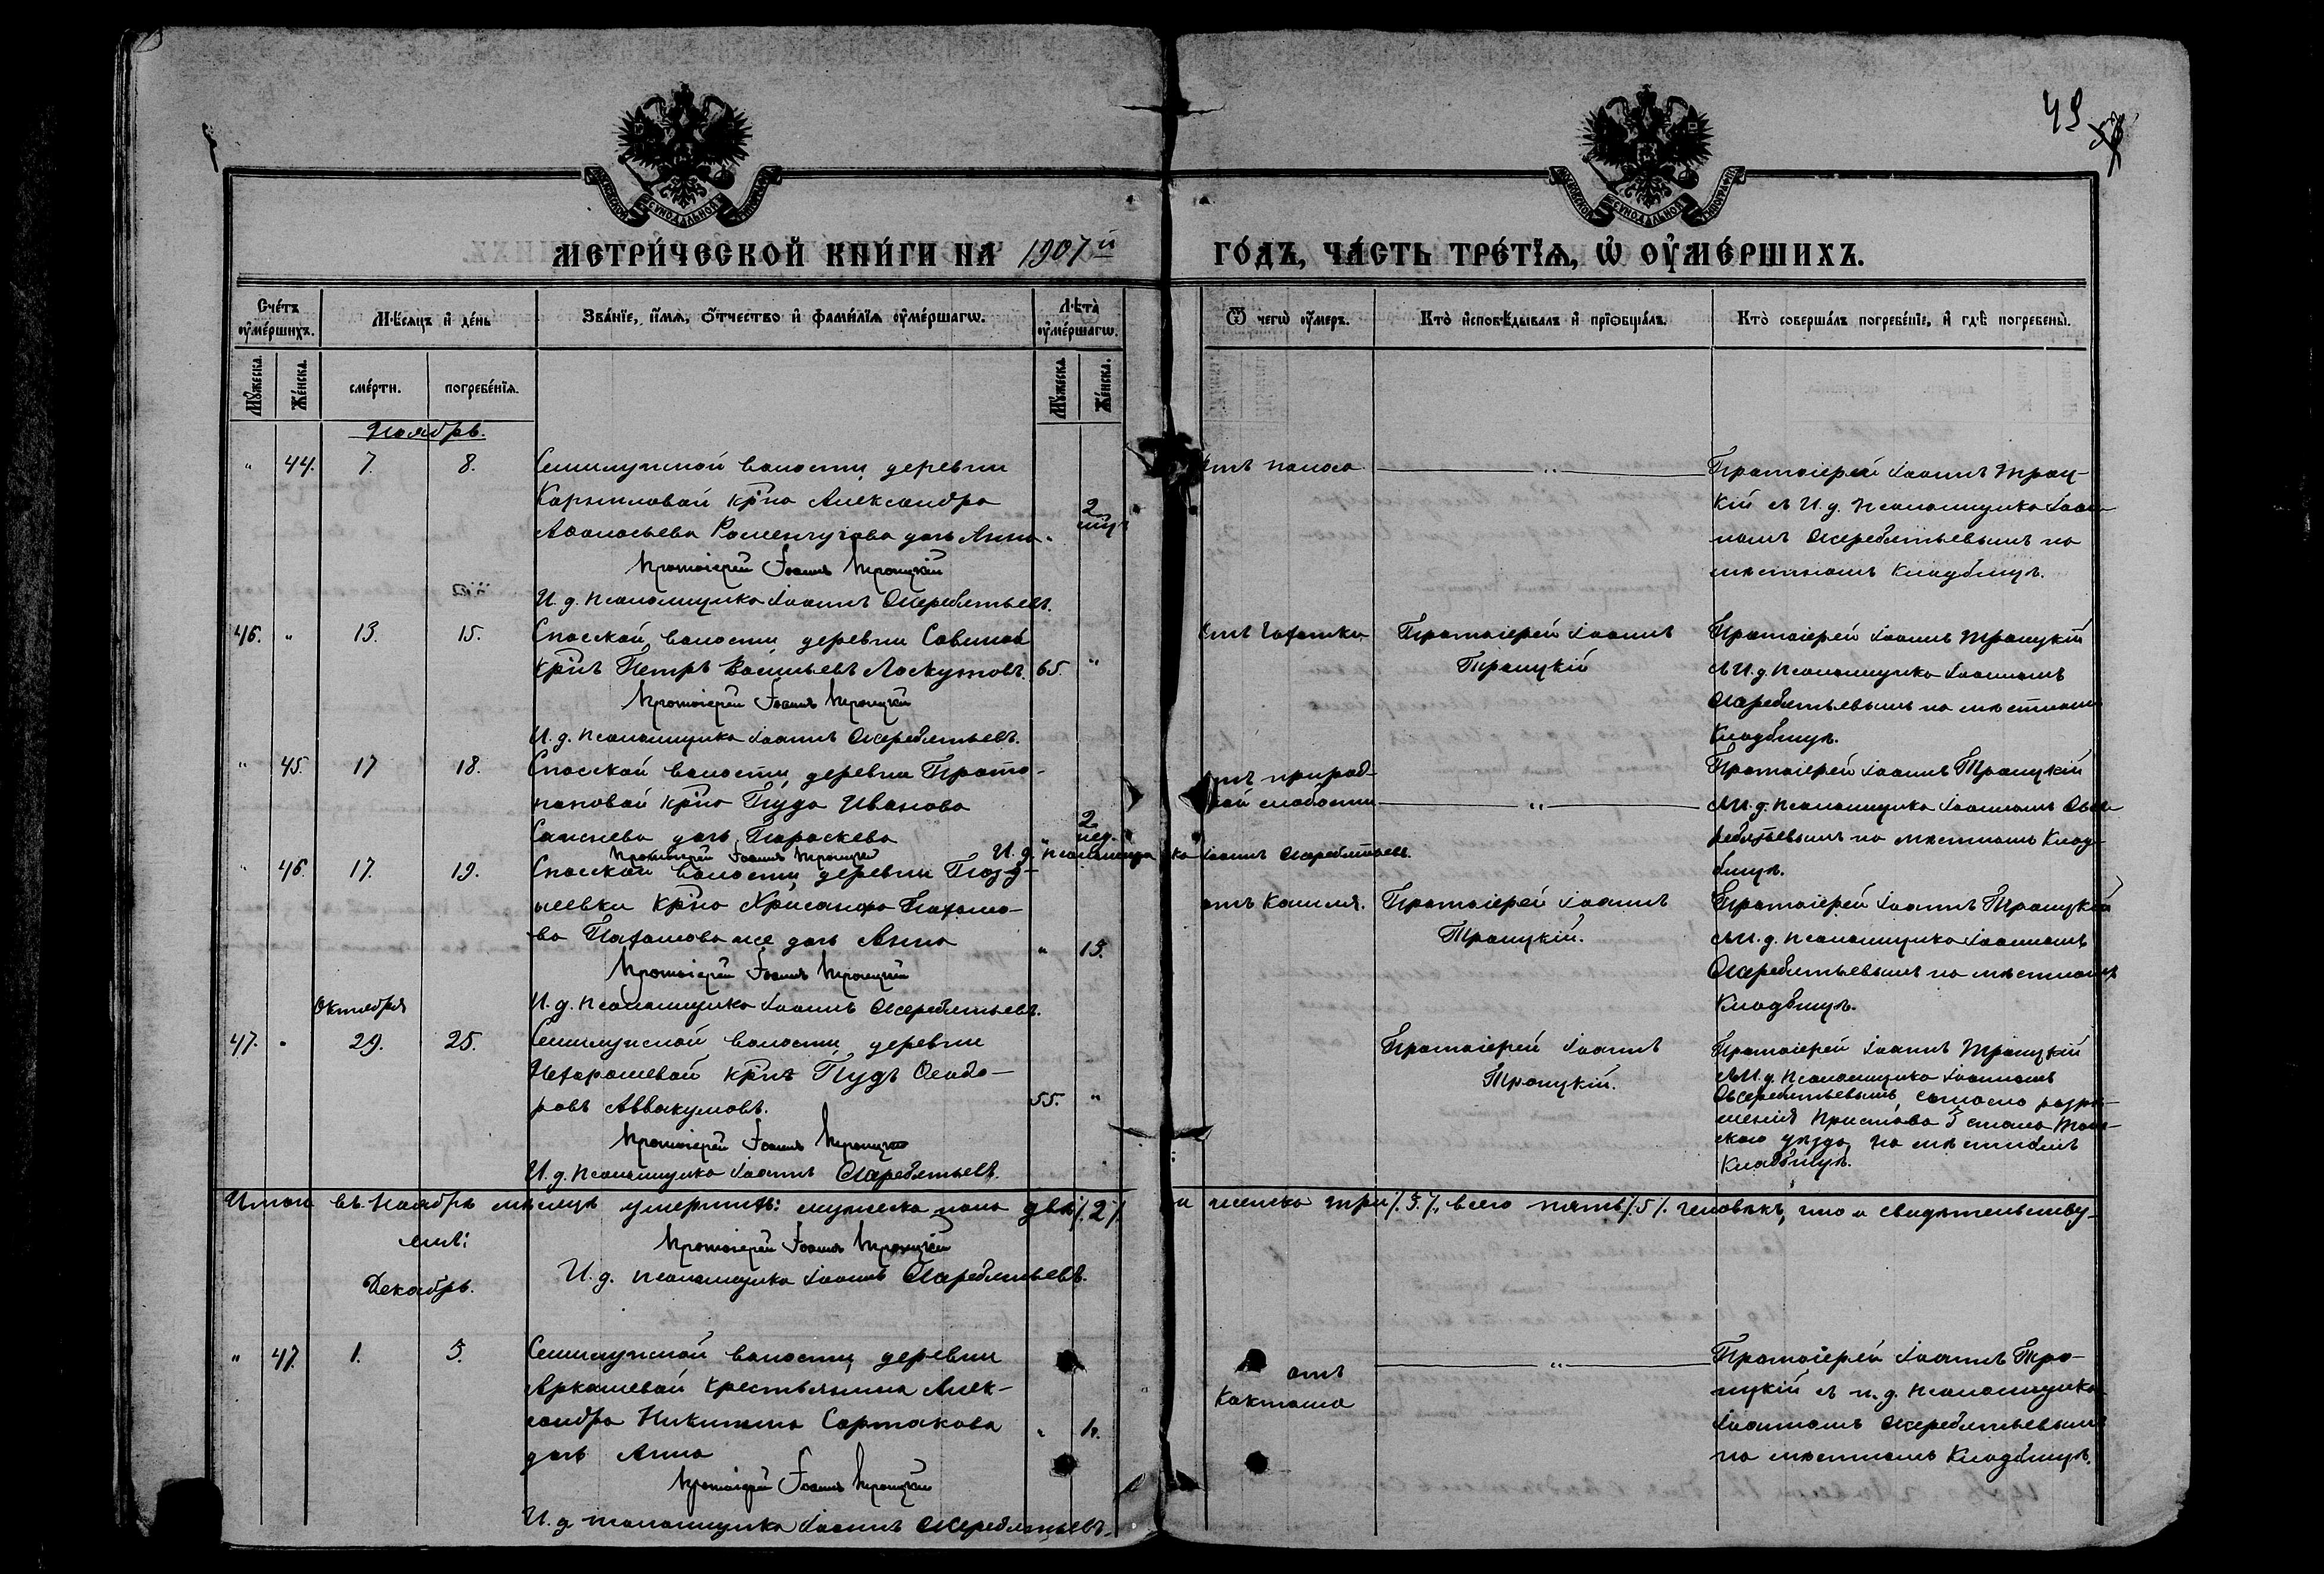 49
МОСКОВСКОЙ СѴНОДАЛЬНОЙ ТИПОГРАФІИ
МОСКОВСКОЙ СѴНОДАЛЬНОЙ ТИПОГРАФІИ
МЕТРИ́ЧЕСКОЙ КНИ́ГИ НА 1907й ГО́ДЪ, ЧА́СТЬ ТРЕ́ТІѦ, Ѡ ОУ҆МЕ́РШИХЪ.
Сче́тъ оу҆ме́ршихъ.
Мѣ́сяцъ и҆ де́нь
Зва́нїе, и҆́мѧ, ѻ҆́тчество и҆ фами́лїѧ оу҆ме́ршагѡ.
Лѣ̀та̀ оу҆ме́ршагѡ.
Ѿ чегѡ̀ оу҆́меръ.
Кто̀ и҆сповѣ́дывалъ и҆ прїѡбща́лъ.
Кто̀ соверша́лъ погребе́нїе, и҆ гдѣ̀ погребены̀.
Мꙋ́жеска.
Же́нска.
сме́рти.
погребе́нїѧ.
Мꙋ́жеска.
Же́нска.
Ноябрь.
" 44. 7. 8. Семилужной волости, деревни
Кр̃на Александра
Аѳанасьева дочь Анна " 2
Протоіерей Іоаннъ Троицкій
И. д. псаломщика Іоаннъ Жеребятьевъ.
отъ поноса "
Протоіерей Іоаннъ Троиц-
кій съ И. д. псаломщика Іоан-
номъ Жеребятьевымъ на
мѣстномъ кладбищѣ.
46. " 13. 15. Спасской волости, деревни
кр̃нъ Петръ Васильевъ Лоскутовъ. 65. "
Протоіерей Іоаннъ Троицкій
И. д. псаломщика Іоаннъ Жеребятьевъ.
отъ чахотки
Протоіерей Іоаннъ
Троицкій
Протоіерей Іоаннъ Троицкій
съ И. д. псаломщика Іоанномъ
Жеребятьевымъ на мѣстномъ
кладбищѣ.
" 45. 17 18. Спасской волости, деревни Прото-
поповой кр̃на Пуда Иванова
дочь Параскева " 2 нед.
Протоіерей Іоаннъ Троицкій И. д. псаломщика Іоаннъ Жеребятьевъ.
отъ природ-
ной слабости "
Протоіерей Іоаннъ Троицкій
съ И. д. псаломщика Іоанномъ Же-
ребятьевымъ на мѣстномъ клад-
бищѣ.
" 46. 17. 19. Спасской волости, деревни
кр̃на Хрисанфа
дочь Анна " 15.
Протоіерей Іоаннъ Троицкій
И. д. псаломщика Іоаннъ Жеребятьевъ.
отъ кашля.
Протоіерей Іоаннъ
Троицкій.
Протоіерей Іоаннъ Троицкій
съ И. д. псаломщика Іоанномъ
Жеребятьевымъ на мѣстномъ
кладбищѣ.
Октября
47. " 29. 25. Семилужной волости, деревни
Нехорошевой кр̃нъ Пудъ Ѳеодо-
ровъ Аввакумовъ. 55. "
Протоіерей Іоаннъ Троицкій
И. д. псаломщика Іоаннъ Жеребятьевъ.
Протоіерей Іоаннъ
Троицкій.
Протоіерей Іоаннъ Троицкій
съ И. д. псаломщика Іоанномъ
Жеребятьевымъ, согласно разрѣ-
шенія Пристава 3 стана Том-
скаго уѣзда, на мѣстномъ
кладбищѣ.
Итого въ Ноябрѣ мѣсяцѣ умершихъ: мужеска пола два /.2./. и женска три /.3./., всего пять /.5./. человѣкъ, что и свидѣтельству-
емъ:
Протоіерей Іоаннъ Троицкій
И. д. псаломщика Іоаннъ Жеребятьевъ.
Декабрь.
" 47. 1. 3. Семилужной волости, деревни
Аркашевой крестьянина Алек-
сандра Никитина Сортакова
дочь Анна " 1 г.
Протоіерей Іоаннъ Троицкій
И. д. псаломщика Іоаннъ Жеребятьевъ.
отъ
"
Протоіерей Іоаннъ Тро-
ицкій съ и. д. псаломщика
Іоанномъ Жеребятьевымъ
на мѣстномъ кладбищѣ.